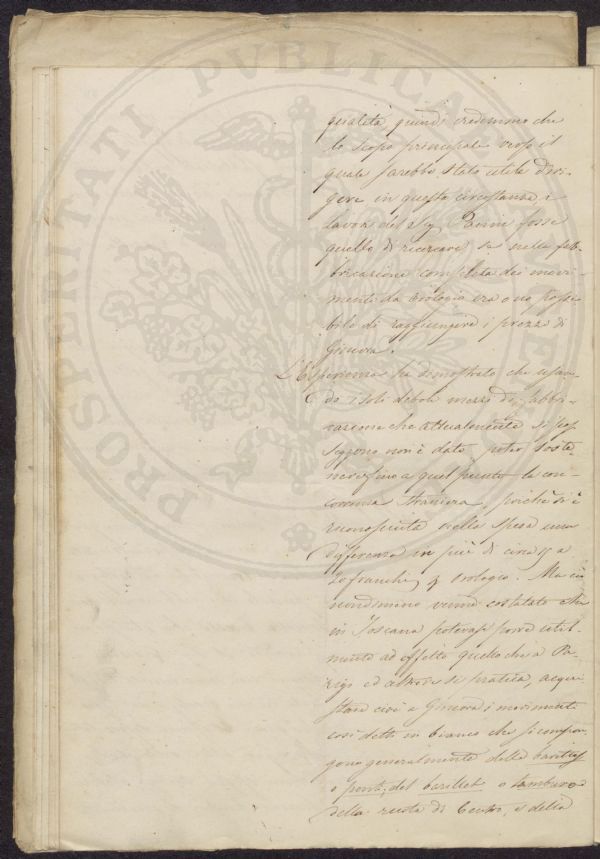 PROSPERITATI PUBLICAE
qualità, quindi credemmo che
lo scopo principale verso il
quale sarebbe stato utile diri-
gere in questa circostanza i
lavori del Sig. fosse
quello di ricercare se nella fab-
bricazione completa dei movi-
menti da orologio era o no possi-
bile di raggiungere i prezzi di
Ginevra.
L'Esperienza ha dimostrato che usan-
do i soli deboli mezzi di fabbri-
cazione che attualmente si pos-
seggono non è dato poter soste-
nere fino a quel punto la con-
correnza straniera, poiché si è
riconosciuta nella spesa una
differenza in più di circa 15 a
20 franchi orologio. Ma ciò
nondimeno venne costatato che
in Toscana potevasi porre util-
mente ad effetto quello che a Pa-
rigi ed altrove si pratica, acqui-
stare cioè a Ginevra i movimenti
così detti in bianco che si compon-
gono generalmente della
o ponti, del barillet o tamburo
della ruota di Centro, e della